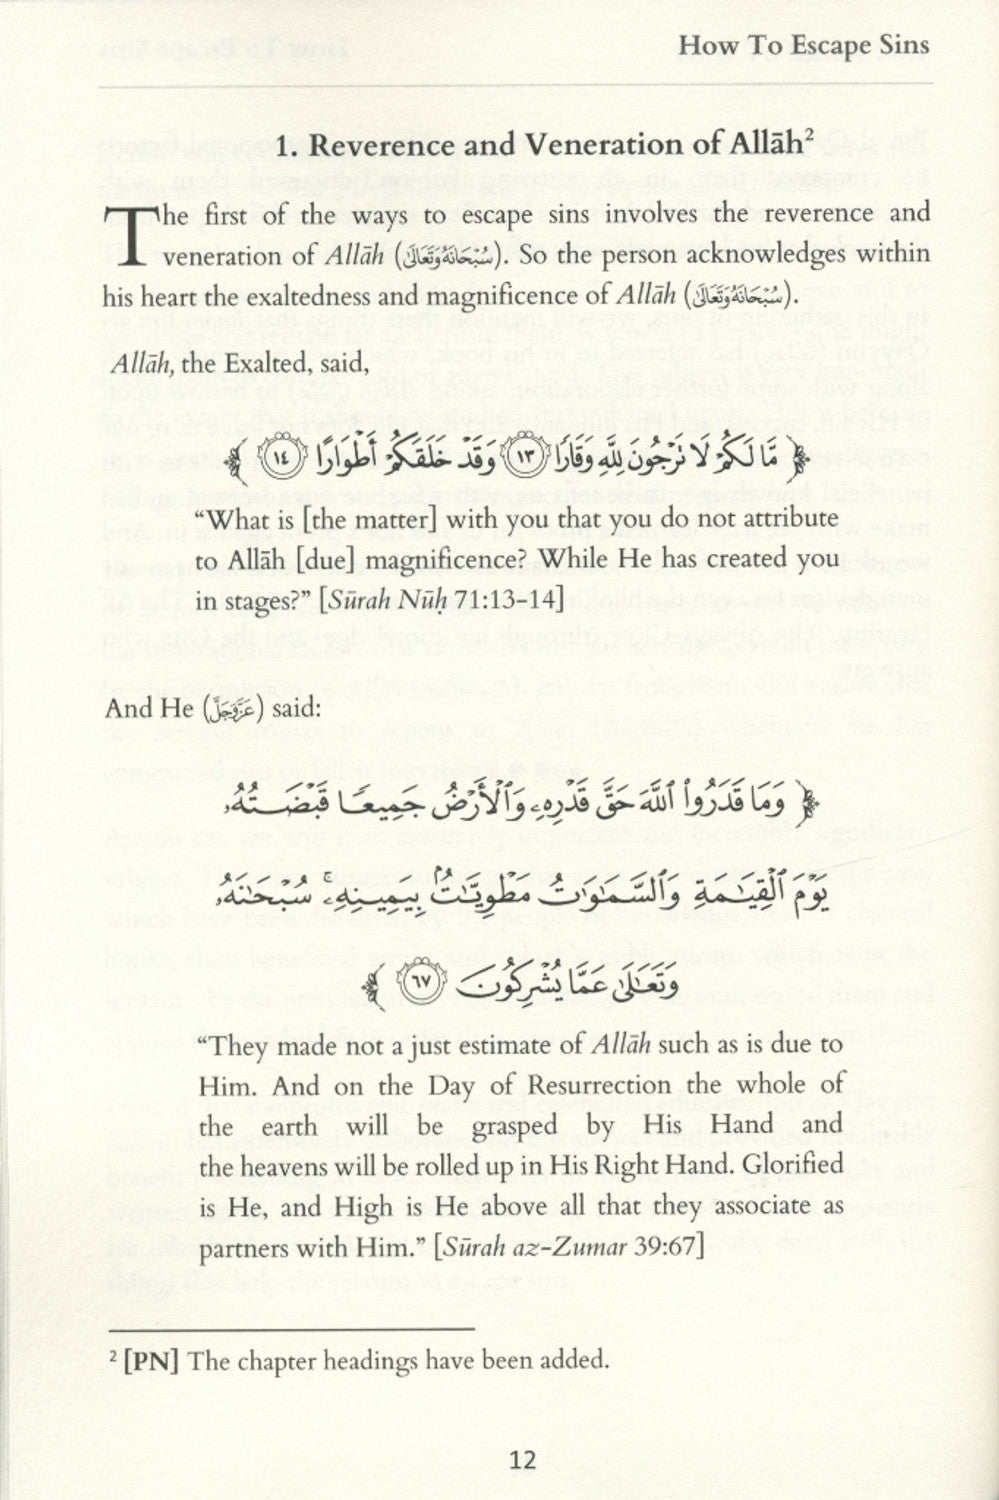 How To Escape Sins
1. Reverence and Veneration of Allāh²
The first of the ways to escape sins involves the reverence and
veneration of Allāh (سُبْحَانَهُ وَتَعَالَىٰ). So the person acknowledges within
his heart the exaltedness and magnificence of Allāh (سُبْحَانَهُ وَتَعَالَىٰ).
Allāh, the Exalted, said,
﴿ مَّا لَكُمْ لَا تَرْجُونَ لِلَّهِ وَقَارًا ١٣ وَقَدْ خَلَقَكُمْ أَطْوَارًا ١٤ ﴾
“What is [the matter] with you that you do not attribute
to Allāh [due] magnificence? While He has created you
in stages?” [Sūrah Nūḥ 71:13-14]
And He (عَزَّوَجَلَّ) said:
﴿ وَمَا قَدَرُوا۟ ٱللَّهَ حَقَّ قَدْرِهِۦ وَٱلْأَرْضُ جَمِيعًا قَبْضَتُهُۥ
يَوْمَ ٱلْقِيَـٰمَةِ وَٱلسَّمَـٰوَٰتُ مَطْوِيَّـٰتٌۢ بِيَمِينِهِۦ ۚ سُبْحَـٰنَهُۥ
وَتَعَـٰلَىٰ عَمَّا يُشْرِكُونَ ٦٧ ﴾
“They made not a just estimate of Allāh such as is due to
Him. And on the Day of Resurrection the whole of
the earth will be grasped by His Hand and
the heavens will be rolled up in His Right Hand. Glorified
is He, and High is He above all that they associate as
partners with Him.” [Sūrah az-Zumar 39:67]
² [PN] The chapter headings have been added.
12